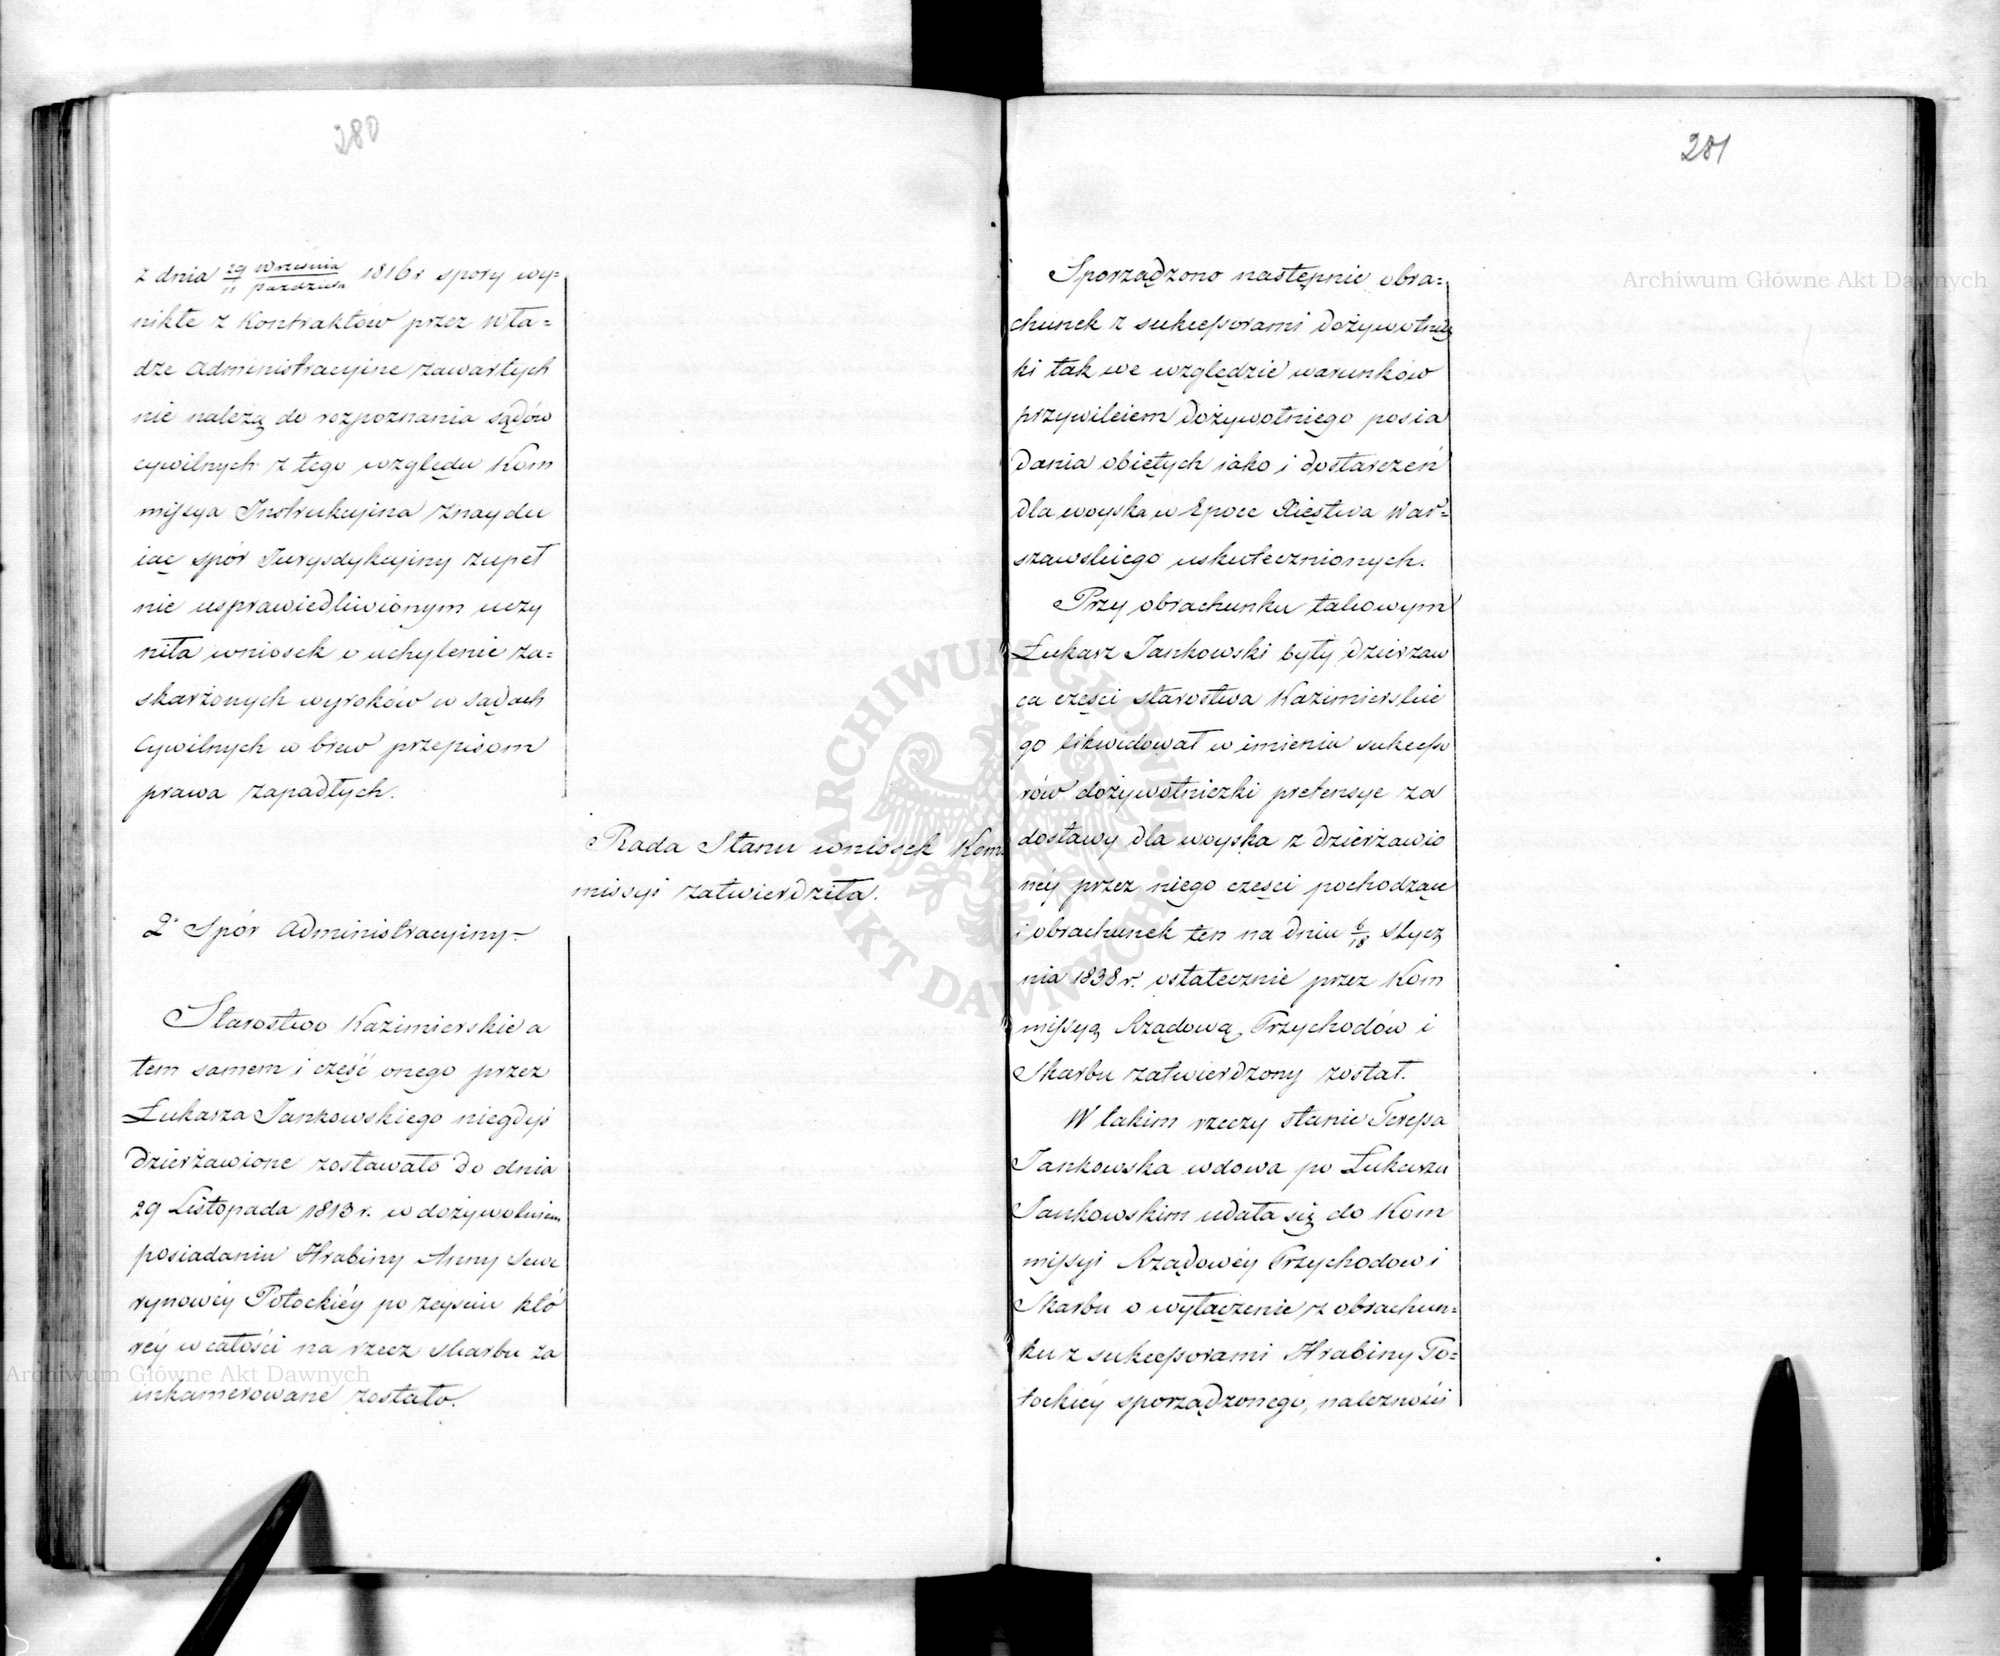 280
z dnia 29 Września / 11 Paździer: 1816 r spory wy=
nikłe z Kontraktów przez Wła=
dze Administracyjne zawartych
nie należą do rozpoznania sądów
cywilnych z tego względu Kom
missya Instrukcyjna znaydu
iąc spór Jurysdykcyjny zupeł
nie usprawiedliwionym uczy
niła wniosek o uchylenie za=
skarżonych wyroków w sądach
Cywilnych w brew przepisom
prawa zapadłych.
Rada Stanu wniosek Kom
missyi zatwierdziła.
2° Spór Administracyjny
Starostwo Kazimierskie a
tem samem i część onego przez
Łukasza Jankowskiego niegdyś
dzierżawione zostawało do dnia
29 Listopada 1813 r. w dożywotniem
posiadaniu Hrabiny Anny Sewe
rynowéy Potockiéy po zeyściu któ
réy w całości na rzecz skarbu za
inkamerowane zostało.
281
Sporządzono następnie obra=
chunek z sukcessorami dożywotnicz
ki tak we względzie warunków
przywileiem dożywotniego posia
dania obiętych iako i dostarczeń
dla woyska w Epoce Xięstwa War=
szawskiego uskutecznionych.
Przy obrachunku takowym
Łukasz Jankowski były dzierżaw
ca części starostwa Kazimierskie
go likwidował w imieniu sukcesso
rów dożywotniczki pretensye za
dostawy dla woyska z dzierżawio
néy przez niego części pochodzące
i obrachunek ten na dniu 6/18 Stycz
nia 1838 r. ostatecznie przez Kom
missyą Rządową Przychodów i
Skarbu zatwierdzony został.
W takim rzeczy stanie Teressa
Jankowska wdowa po Łukaszu
Jankowskim udała się do Kom
missyi Rządowéy Przychodów i
Skarbu o wyłączenie z obrachun=
ku z sukcessorami Hrabiny Po=
tockiéy sporządzonego, należności
Archiwum Główne Akt Dawnych
Archiwum Główne Akt Dawnych
ARCHIWUM GŁÓWNE AKT DAWNYCH